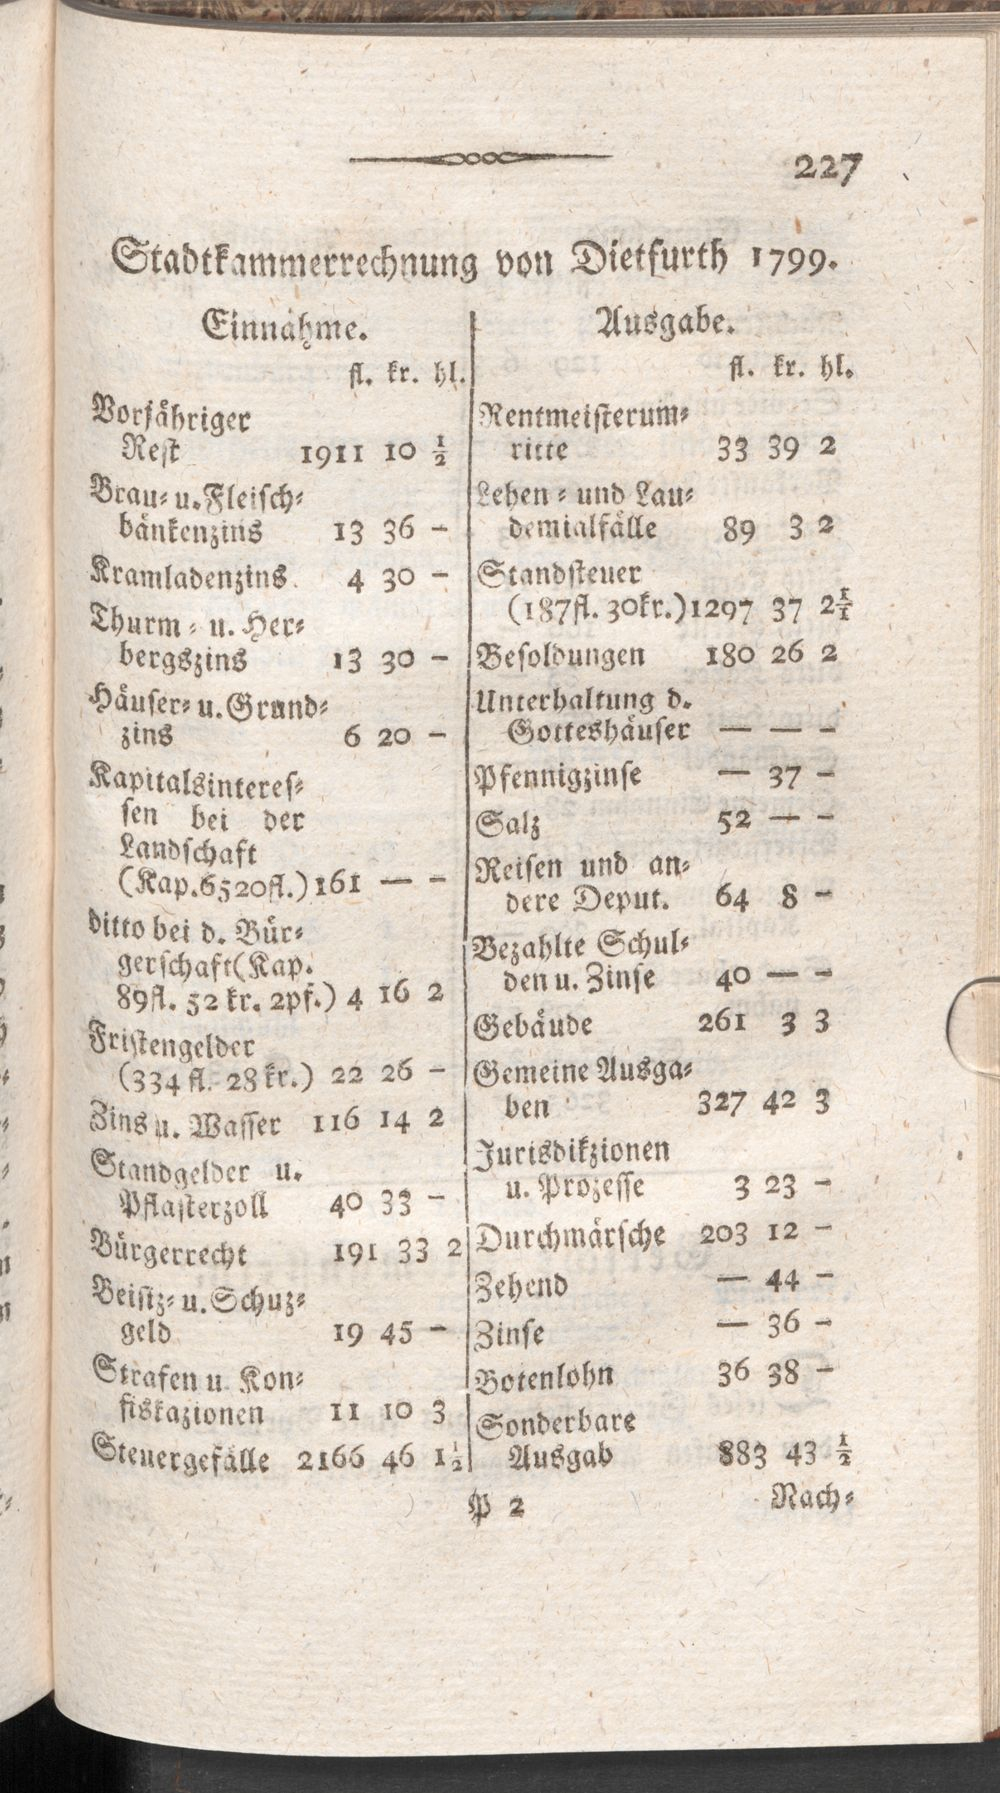 227
Stadtkammerrechnung von Dietfurth 1799.
Einnahme.
fl. kr. hl.
Vorjähriger
Rest 1911 10 ½
Brau- u. Fleisch-
bänkenzins 13 36 —
Kramladenzins 4 30 —
Thurm- u. Her-
bergszins 13 30 —
Häuser- u. Grund-
zins 6 20 —
Kapitalsinteres-
sen bei der
Landschaft
(Kap. 6520fl.) 161 — —
ditto bei d. Bür-
gerschaft (Kap.
89fl. 52 kr. 2pf.) 4 16 2
Fristengelder
(334 fl. 28 kr.) 22 26 —
Zins u. Wasser 116 14 2
Standgelder u.
Pflasterzoll 40 33 —
Bürgerrecht 191 33 2
Beisiz- u. Schuz-
geld 19 45 —
Strafen u Kon-
fiskazionen 11 10 3
Steuergefälle 2166 46 1½
Ausgabe.
fl. kr. hl.
Rentmeisterum-
ritte 33 39 2
Lehen- und Lau-
demialfälle 89 3 2
Standsteuer
(187fl. 30kr.) 1297 37 2 1/1
Besoldungen 180 26 2
Unterhaltung d.
Gotteshäuser — — —
Pfennigzinse — 37 —
Salz 52 — —
Reisen und an-
dere Deput. 64 8 —
Bezahlte Schul-
den u. Zinse 40 — —
Gebäude 261 3 3
Gemeine Ausga-
ben 327 42 3
Jurisdikzionen
u. Prozesse 3 23 —
Durchmärsche 203 12 —
Zehend — 44 —
Zinse — 36 —
Botenlohn 36 38 —
Sonderbare
Ausgab 883 43 ½
P 2 Nach-